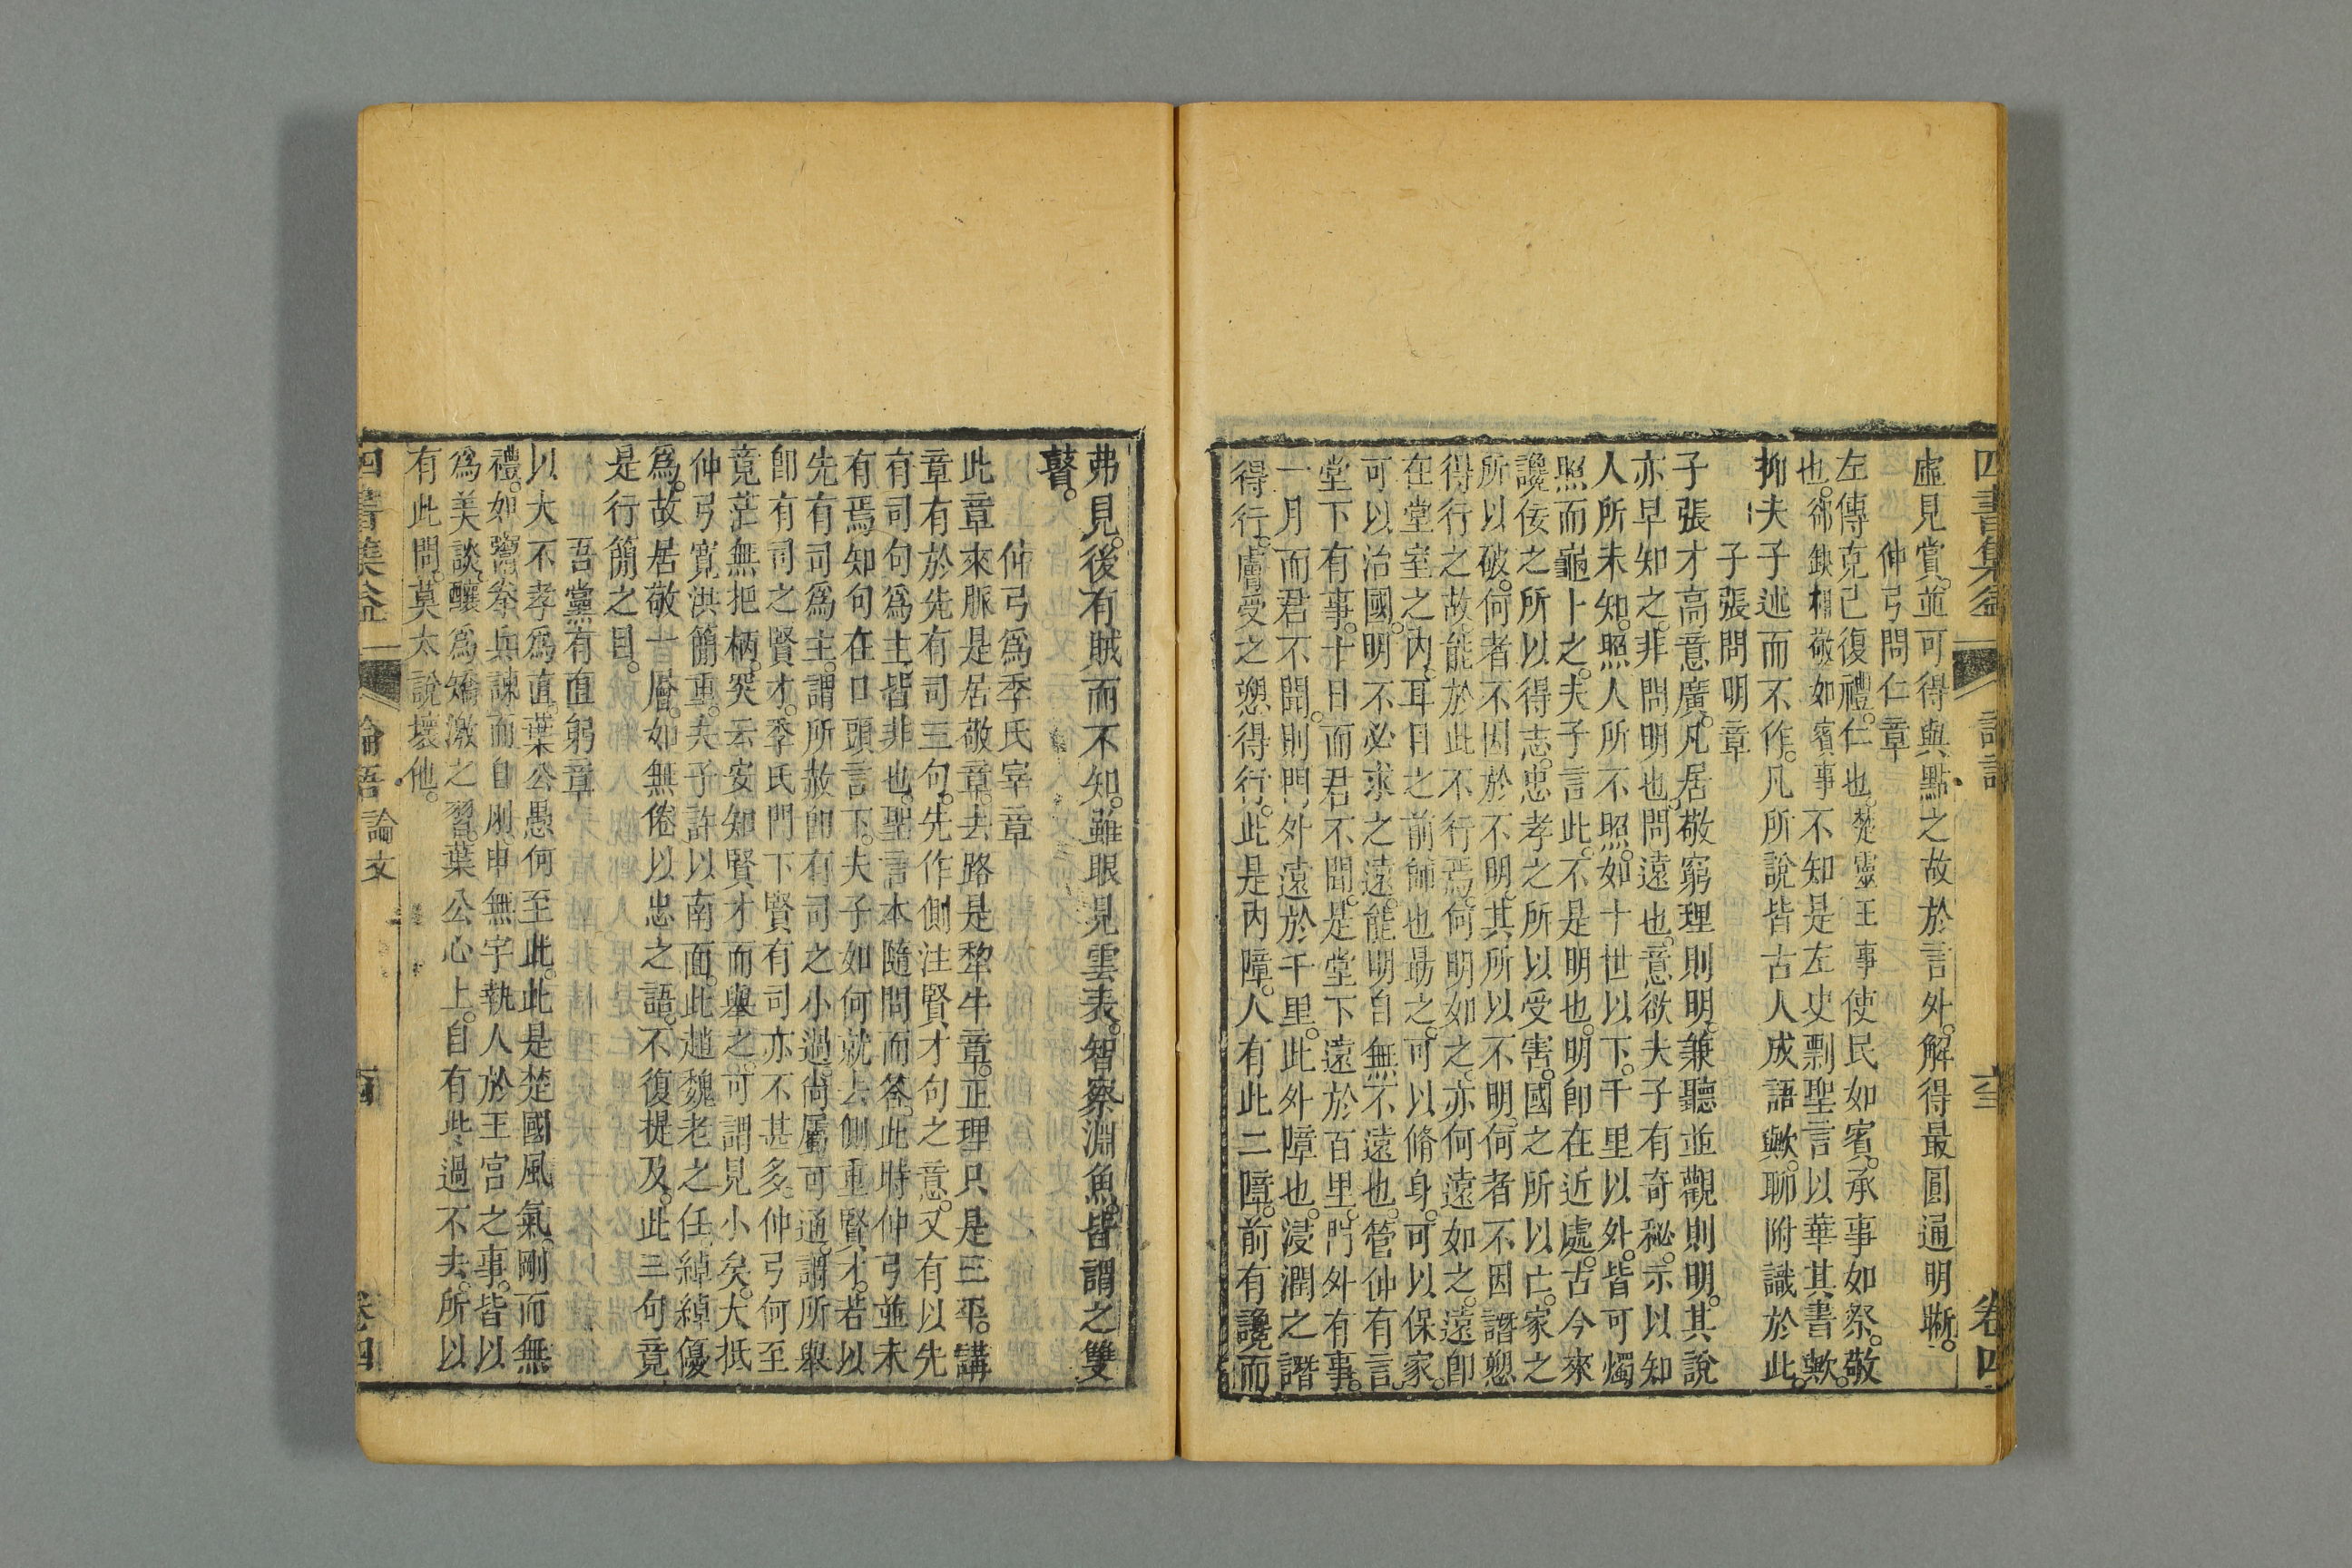 四書集益
論語
卷四
虛見賞並可得與點之故於言外。解得最圓通明晰。
仲弓問仁章
左傳克己復禮。仁也。楚靈王事使民如賓。承事如祭。敬
也。郤缺相敬如賓事不知是左史剽聖言以華其書歟。
抑夫子述而不作。凡所說皆古人成語歟。聊附識於此。
子張問明章
子張才高意廣。凡居敬窮理則明。兼聽並觀則明。其說
亦早知之。非問明也。問遠也。意欲夫子有奇秘。示以知
人所未知。照人所不照。如十世以下。千里以外。皆可燭
照而龜卜之。夫子言此。不是明也。明卽在近處。古今來
讒佞之所以得志。忠孝之所以受害。國之所以亡。家之
所以破。何者不因於不明。其所以不明。何者不因譖愬
得行之故能於此不行焉。何明如之。亦何遠如之。遠卽
在堂室之內。耳目之前師也勗之。可以脩身。可以保家。
可以治國。明不必求之遠。能明自無不遠也。管仲有言。
堂下有事。十日而君不聞。是堂下遠於百里。門外有事。
一月而君不聞。則門外遠於千里。此外障也。浸潤之譖
得行。膚受之愬得行。此是內障。人有此二障。前有讒而
弗見。後有賊而不知。雖眼見雲表。智察淵魚。皆謂之雙
瞽。
仲弓爲季氏宰章
此章來脈是居敬章。去路是犂牛章。正理只是三平。講
章有於先有司三句。先作側注賢才句之意。又有以先
有司句爲主。皆非也。聖言本隨問而答。此時仲弓並未
有焉知句在口頭言下。夫子如何就去側重賢才。若以
先有司爲主。謂所赦卽有司之小過。尙屬可通。謂所舉
卽有司之賢才。季氏門下賢有司亦不甚多。仲弓何至
竟茫無把柄。突云安知賢才而舉之。可謂見小矣。大抵
仲弓寬洪簡重。夫子許以南面。此趙魏老之任。綽綽優
爲。故居敬一層。如無倦以忠之語。不復提及。此三句竟
是行簡之目。
吾黨有直躬章
以大不孝爲直。葉公愚何至此。此是楚國風氣。剛而無
禮。如鬻拳兵諫而自刖。申無宇執人於王宮之事。皆以
爲美談。釀爲矯激之習。葉公心上。自有此過不去。所以
有此問。莫太說壞他。
四書集益
論語論文
卷四